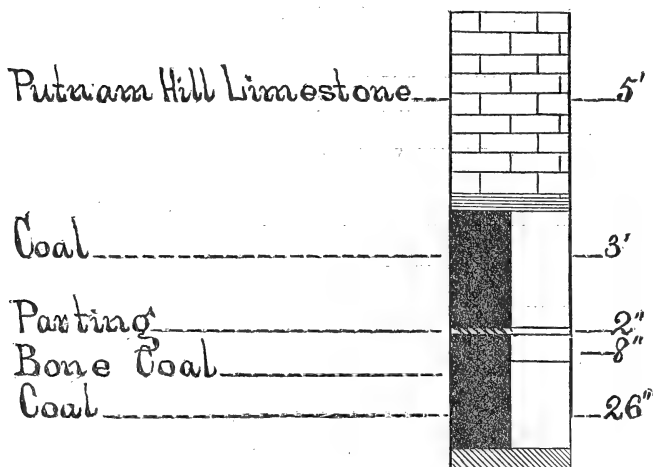 Putnam Hill Limestone 5'
Coal 3'
Parting 2"
Bone Coal 8"
Coal 26"